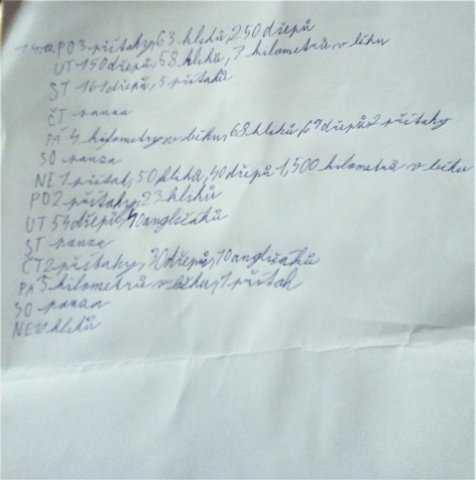 PO 3 přítahy, 63 kliků, 250 dřepů
UT 150 dřepů, 58 kliků, 7 kilometrů v běhu
ST 161 dřepů, 5 přítahů
ČT pauza
PÁ 4 kilometry v běhu, 68 kliků, 69 dřepů 2 přítahy
SO pauza
NE 1 přítah, 50 kliků, 40 dřepů 1,500 kilometrů v běhu
PO 2 přítahy, 23 kliků
UT 54 dřepů, 10 angličáků
ST pauza
ČT 2 přítahy, 30 dřepů, 10 angličáků
PÁ 5 kilometrů v běhu, 1 přítah
SO pauza
NE kliků